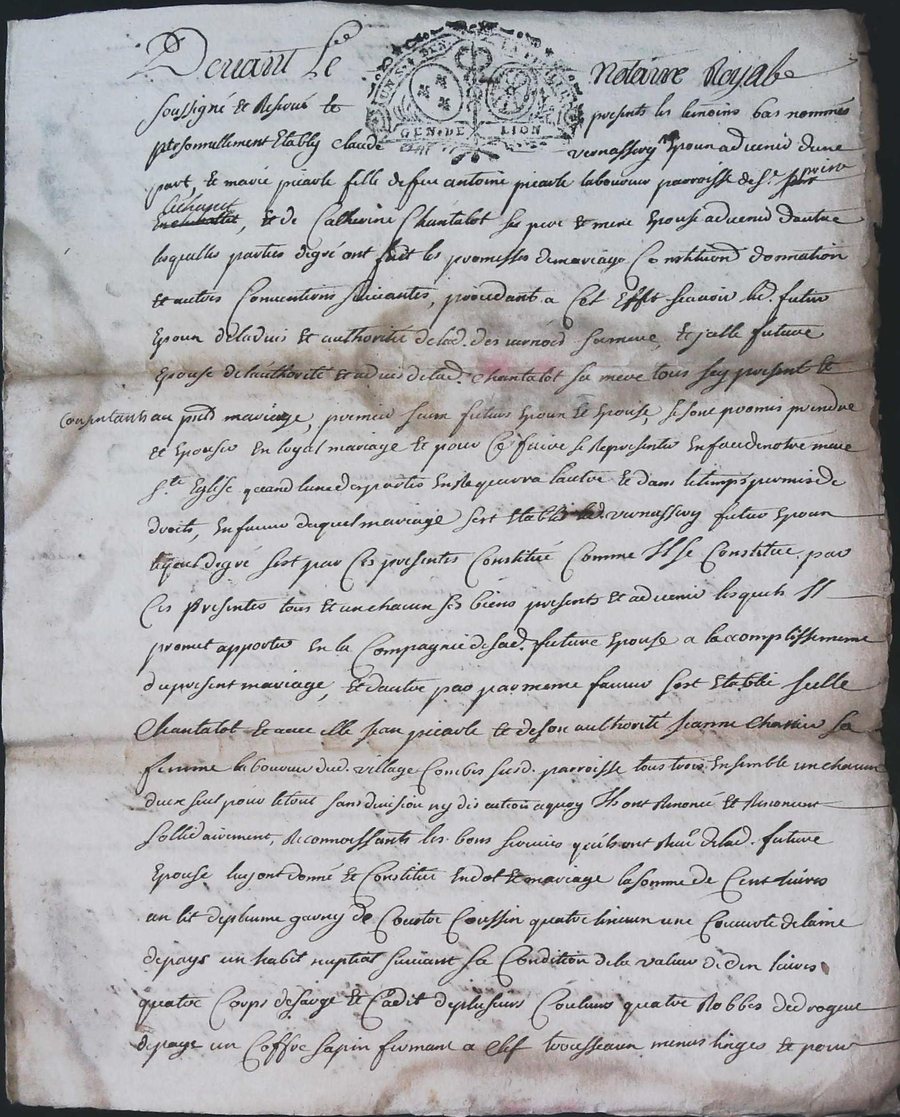 Devant Le Notaire Royal
UN S. 4 DEN
GEN. DE LION
soussigné et Reservé et presents les temoins bas nommés
personnellement Etably Claude vernassery Epoux advenir dune
part, Et marie picarle fille de feu antoine picarle laboureur parroisse de St. prive
, et de Catherine Chantalot ses pere et mere Epouse advenir dautre
lesquelles parties de gré ont fait les promesses de mariage Constitution donnation
et autres Conventions suivantes, procedant a Cet Effet scavoir led. futur
Epoux de ladvis et authorité de lad. des sa mere, Et jcelle future
Epouse de lauthorité et advis de lad. Chantalot sa mere tous jcy present et
au pnt mariage, premier futurs Epoux et Epouse, se sont promis prendre
et Epouser En loyal mariage et pour Ce faire se Representer En face de notre mere
Ste. Eglise quand lune des parties En Requerra lautre et dans le temps permis de
droits, En faveur duquel mariage sest Etably led. vernassery futur Epoux
lequel de gré sest par Ces presentes Constitué Comme Il se Constitue par
Ces presentes tous et un chacun ses biens presents et advenir lesquels Il
promet apporter En la Compagnie de sad. future Epouse a laccomplissement
du present mariage, Et dautre par par meme faveur sest Etablie jcelle
Chantalot et avec elle jean picarle et de son authorité jeanne sa
femme laboureur dud. village Combes susd. parroisse tous trois Ensemble un chacun
deux seul pour le tout sans division ny discution a quoy Ils ont Renoncé et Renoncent
sollidairement, Reconnoissants les bons services quils ont Reçu de lad. future
Epouse luy ont donné et Constitué En dot et mariage la somme de Cent livres
un lit de plume garny de Coustre Coussin quatre linceux une Couverte de laine
de pays un habit nuptial suivant sa Condition de la valeur de dix livres
quatre Corps de sarge et Cadit de plusieurs Couleurs quatre Robbes de droguet
de pays un Coffre sapin fermant a Clef trousseaux menus linges et pour